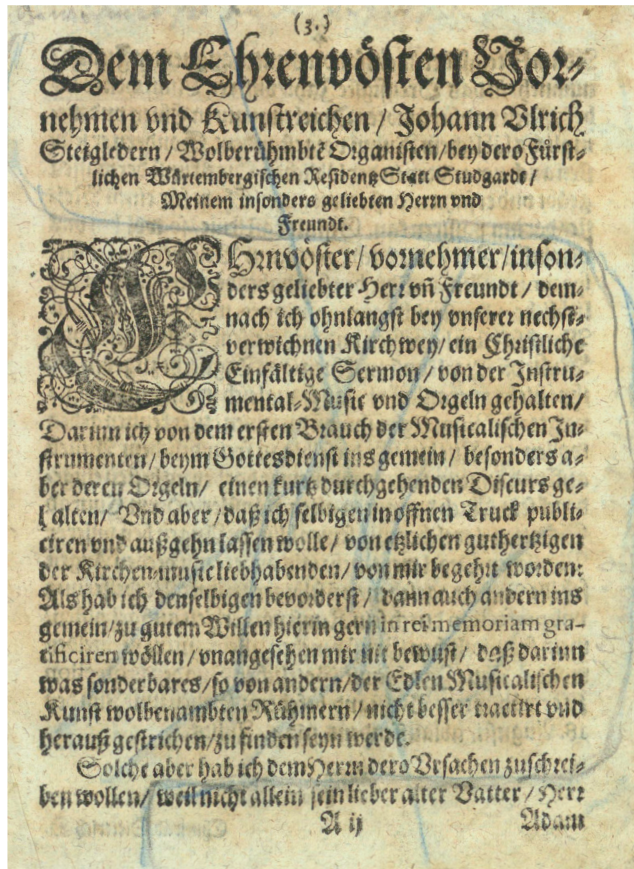 (3.)
Dem Ehrenvösten Vor⸗
nehmen vnd Kunstreichen / Johann Vlrich
Steigledern / Wolberühmbtẽ Organisten / bey dero Fürst⸗
lichen Würtembergischen Residentz Statt Studgardt /
Meinem insonders geliebten Herrn vnd
Freundt.
EHrnvöster / vornehmer / inson⸗
ders geliebter Herr vñ Freundt / dem⸗
nach ich ohnlangst bey vnserer nechst⸗
verwichnen Kirchwey / ein Christliche
Einfältige Sermon / von der Instru⸗
mental⸗Music vnd Orgeln gehalten /
Darinn ich von dem ersten Brauch der Musicalischen In⸗
strumenten / beym Gottesdienst ins gemein / besonders a⸗
ber deren Orgeln / einen kurtz durchgehenden Discurs ge⸗
halten / Vnd aber / daß ich selbigen in offnen Truck publi⸗
ciren vnd außgehn lassen wolle / von etzlichen guthertzigen
der Kirchen⸗music liebhabenden / von mir begehrt worden:
Als hab ich denselbigen bevorderst / dann auch andern ins
gemein / zu gutem Willen hierin gern in rei memoriam gra-
tificiren wöllen / vnangesehen mir nit bewust / daß darinn
was sonderbares / so von andern / der Edlen Musicalischen
Kunst wolbenambten Rühmern / nicht besser tractirt vnd
herauß gestrichen / zu finden seyn werde.
Solche aber hab ich dem Herrn dero Vrsachen zuschrei⸗
ben wollen / weil nicht allein sein lieber alter Vatter / Herr
A ij
Adam